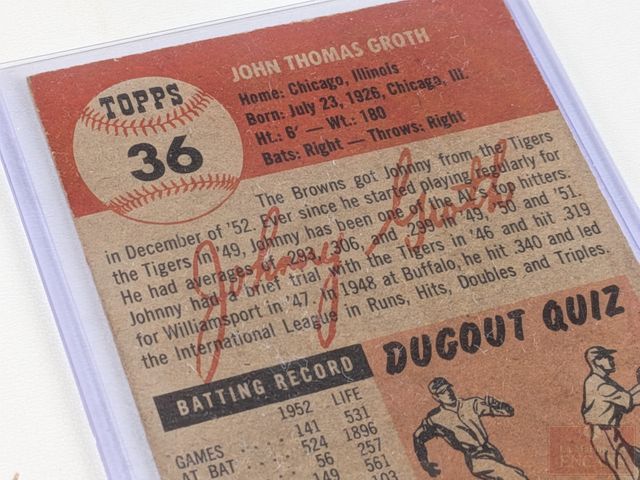 JOHN THOMAS GROTH
Home: Chicago, Illinois
Born: July 23, 1926, Chicago, Ill.
Ht.: 6' — Wt.: 180
Bats: Right — Throws: Right
TOPPS
36
The Browns got Johnny from the Tigers
in December of '52. Ever since he started playing regularly for
the Tigers in '49, Johnny has been one of the AL's top hitters.
He had averages of .293, .306, and .299 in '49, '50 and '51.
Johnny had a brief trial with the Tigers in '46 and hit .319
for Williamsport in '47. In 1948 at Buffalo, he hit .340 and led
the International League in Runs, Hits, Doubles and Triples.
Johnny Groth
DUGOUT QUIZ
BATTING RECORD
1952 LIFE
GAMES 141 531
AT BAT 524 1896
56 257
149 561
103